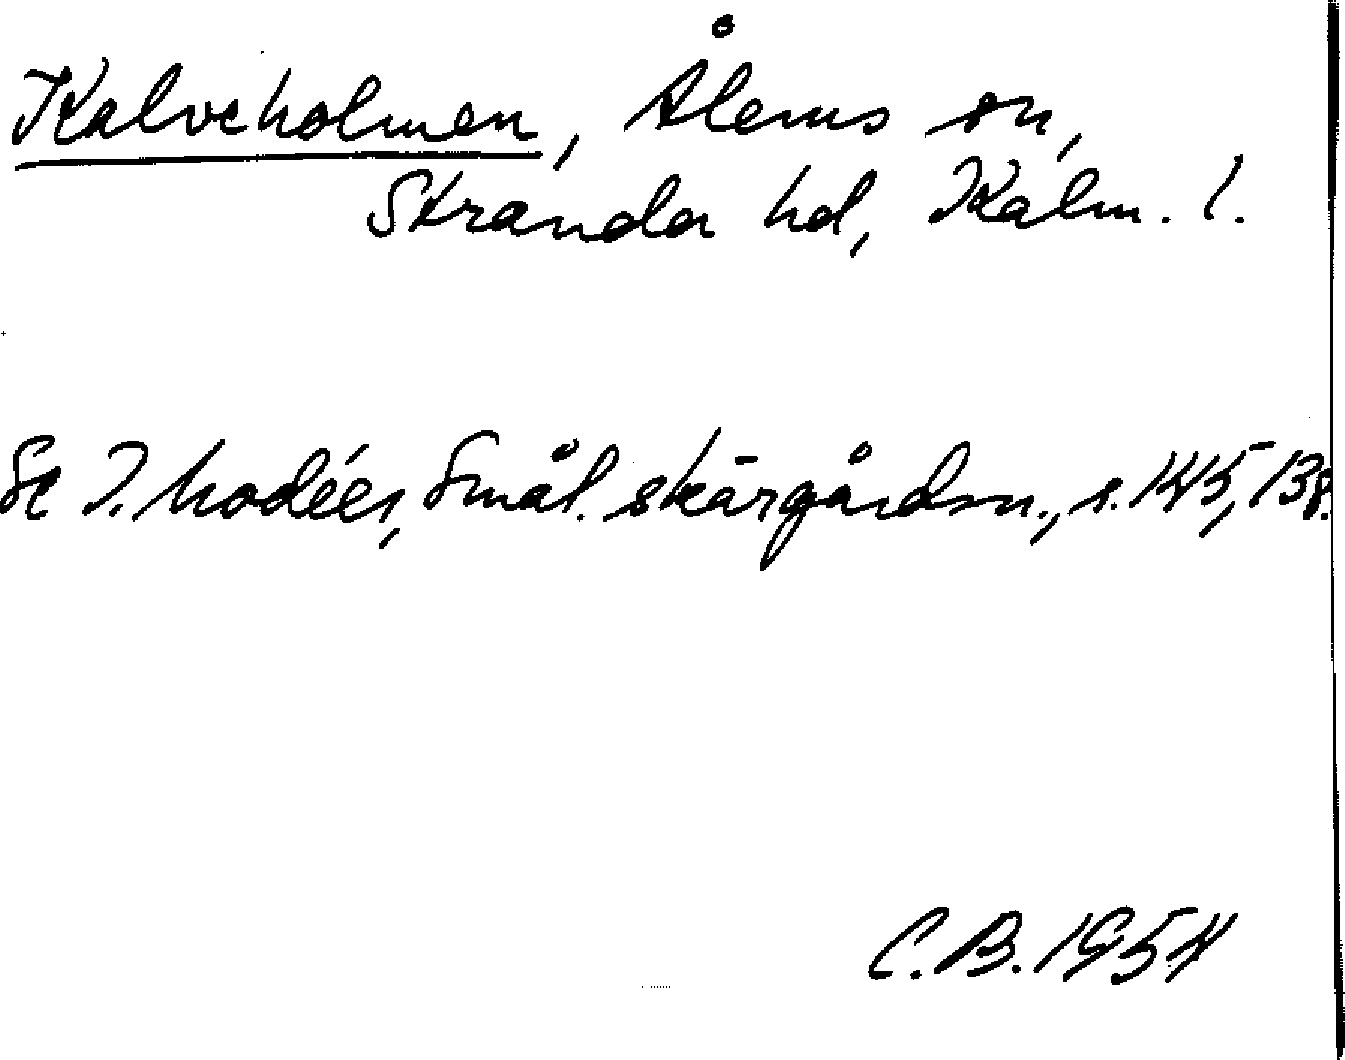 Kalvholmen, Ålems sn,
Stranda hd, Kalm. l.
Se I. Modéer, Smål. skärgårdsn., s. 145, 138.
C.B. 1954